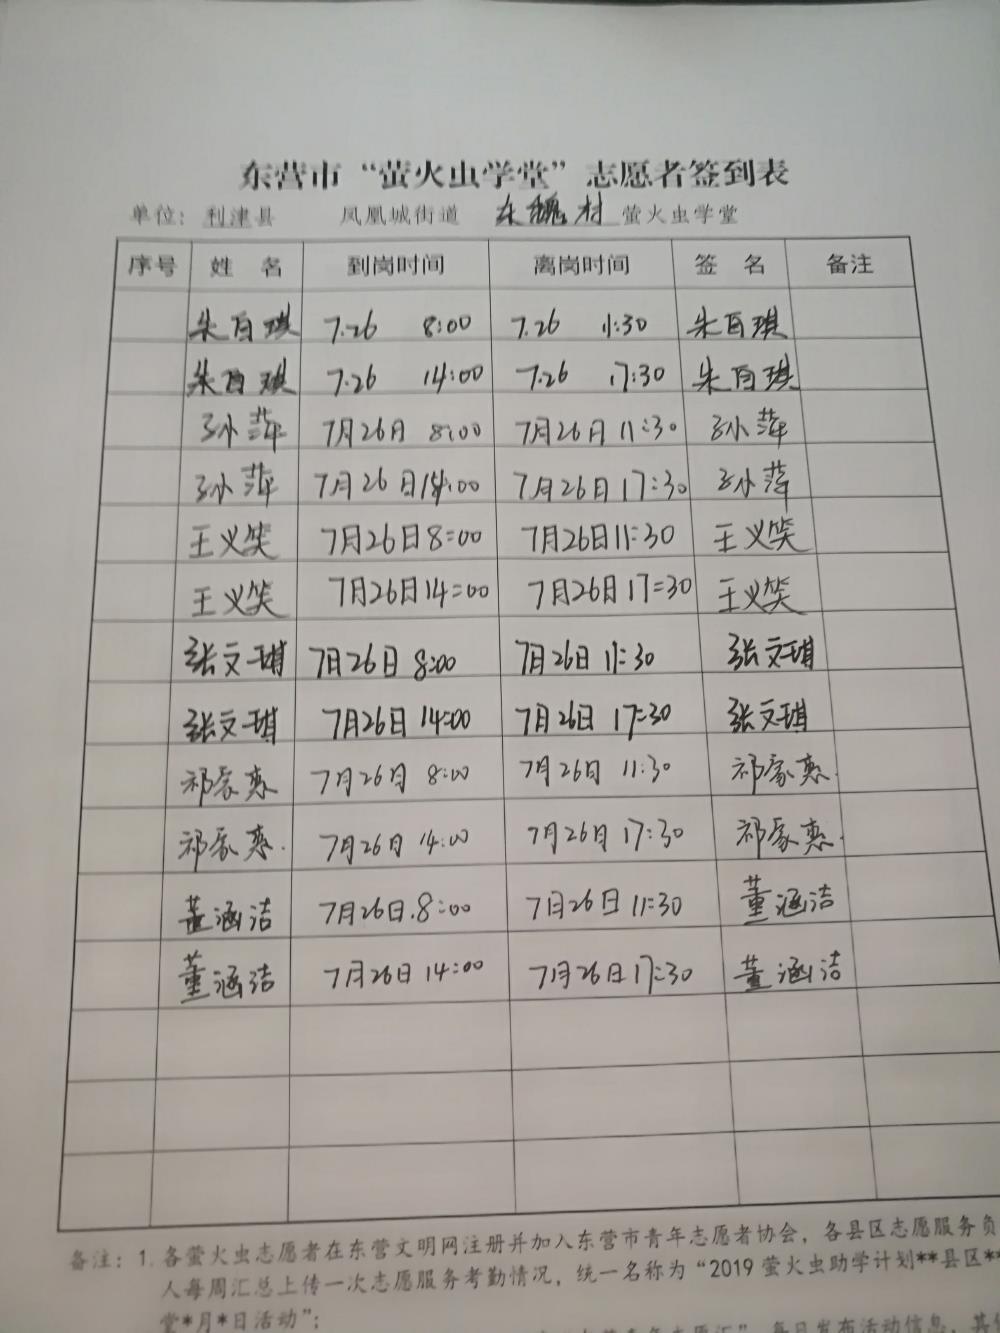 东营市“萤火虫学堂”志愿者签到表
单位：利津县 凤凰城街道 东魏村 萤火虫学堂
序号 姓 名 到岗时间 离岗时间 签 名 备注
朱百琪 7.26 8:00 7.26 11:30 朱百琪
朱百琪 7.26 14:00 7.26 17:30 朱百琪
孙小萍 7月26日 8:00 7月26日 11:30 孙小萍
孙小萍 7月26日 14:00 7月26日 17:30 孙小萍
王义笑 7月26日 8:00 7月26日 11:30 王义笑
王义笑 7月26日 14:00 7月26日 17:30 王义笑
张文琪 7月26日 8:00 7月26日 11:30 张文琪
张文琪 7月26日 14:00 7月26日 17:30 张文琪
祁家惠 7月26日 8:00 7月26日 11:30 祁家惠.
祁家惠. 7月26日 14:00 7月26日 17:30 祁家惠.
董涵洁 7月26日.8:00 7月26日 11:30 董涵洁
董涵洁 7月26日 14:00 7月26日 17:30 董涵洁
备注：1.各萤火虫志愿者在东营文明网注册并加入东营市青年志愿者协会，各县区志愿服务负
人每周汇总上传一次志愿服务考勤情况，统一名称为“2019萤火虫助学计划**县区**
堂*月*日活动”；
每日发布活动信息，其